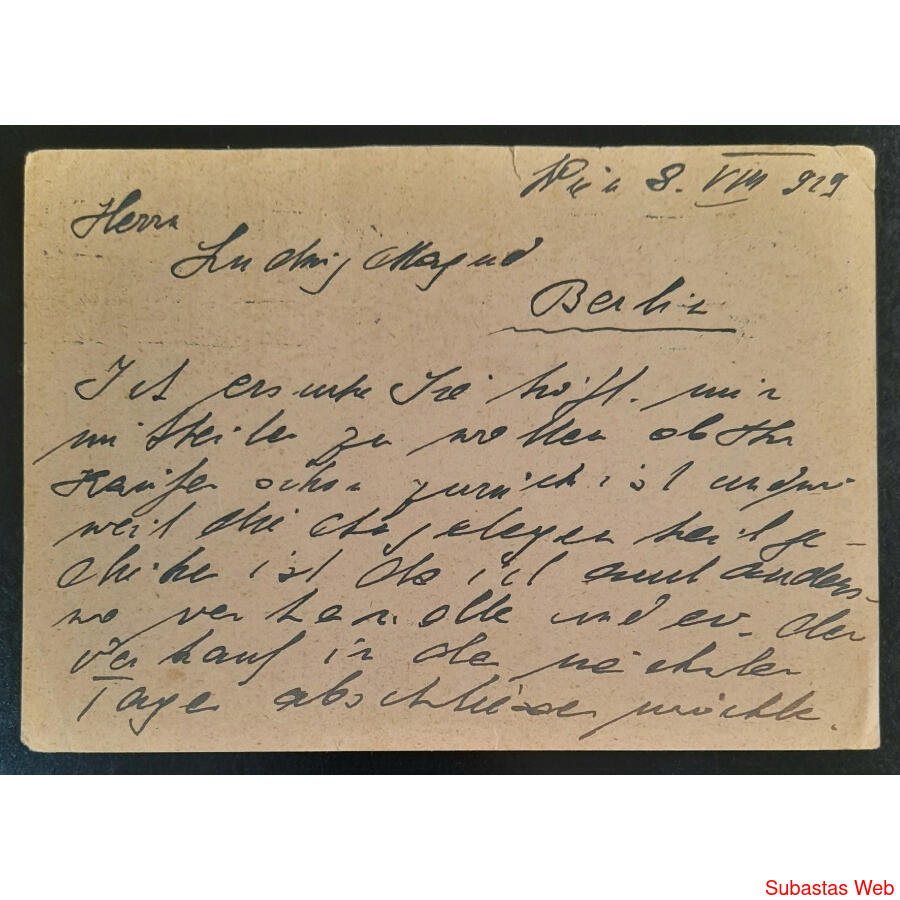 Wien 8. VIII 929
Herrn
Ludwig Magud
Berlin
Ich ersuche Sie höfl. mir
mitteilen zu wollen ob Ihr
Käufer schon zurück ist und wie
weit die Angelegenheit ge-
diehen ist da ich auch anders-
wo verhandle und ev. den
Verkauf in den nächsten
Tagen abschließen möchte.
Subastas Web